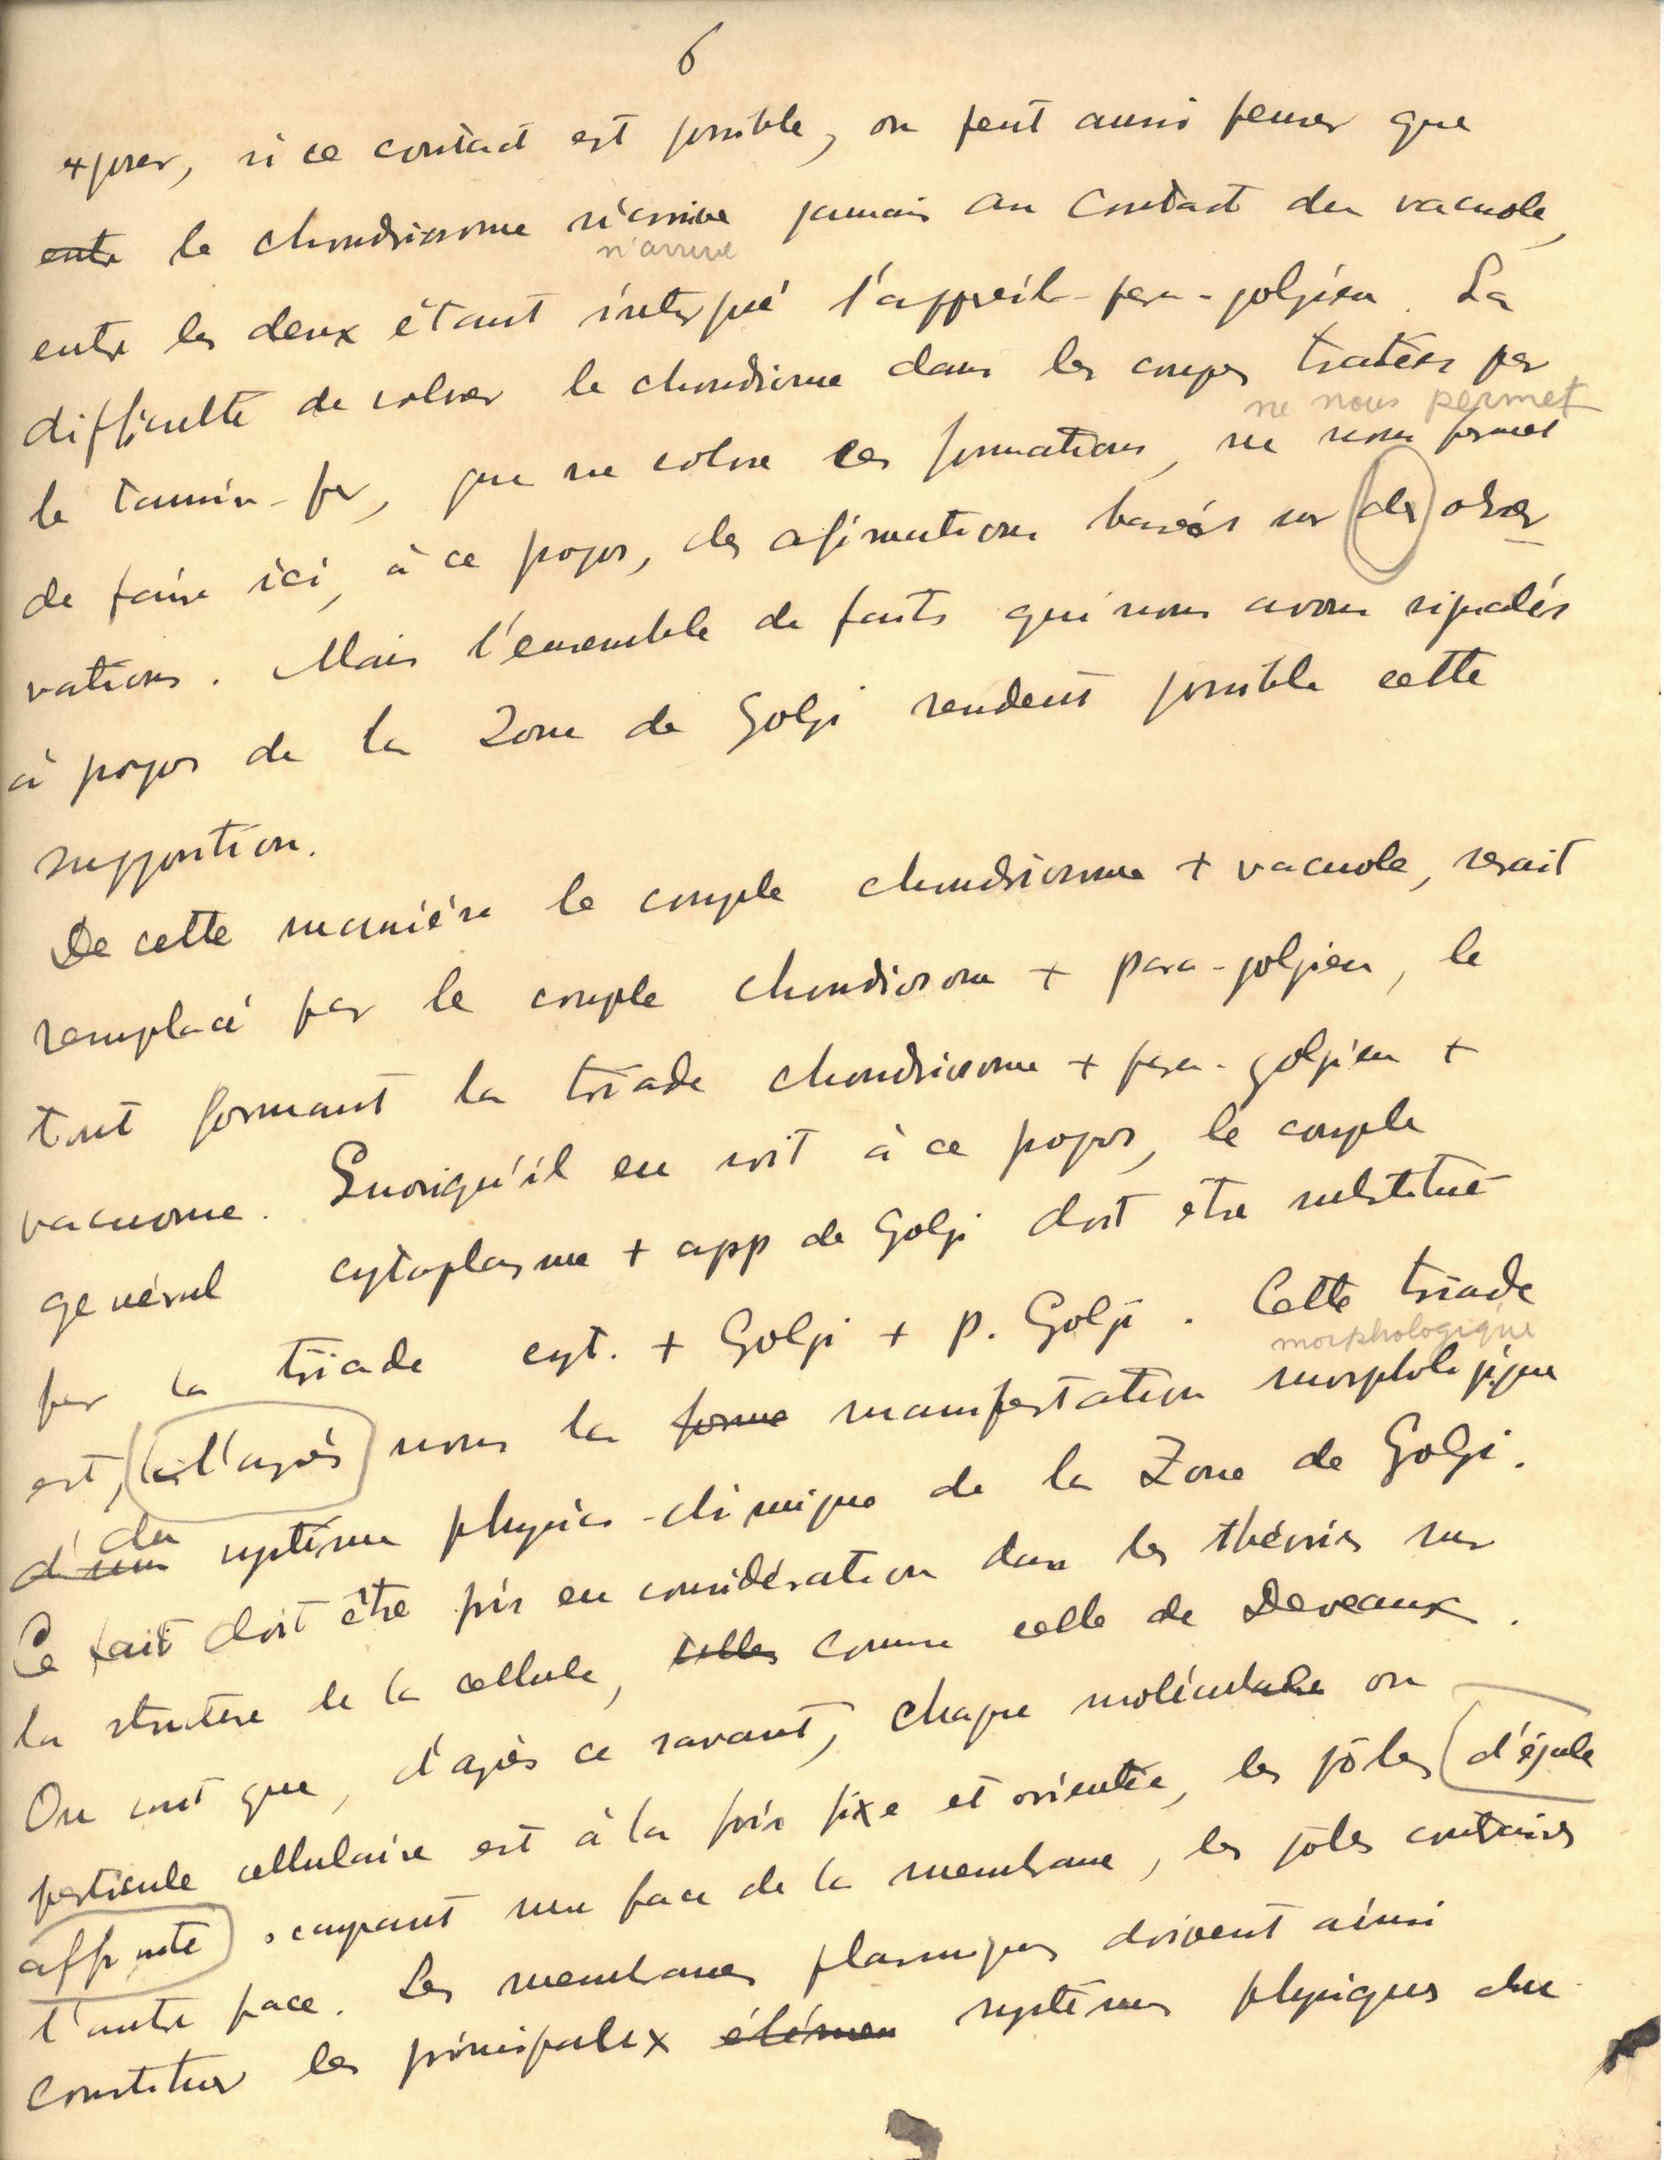 6
+poser, si ce contact est possible, on peut aussi penser que
entre le chondriosome n'arrive jamais au contact du vacuole,
n'arrive
entre les deux étant interposé l'appareil-para-golgien. La
difficulté de colorer le chondriome dans les coupes traités par
ne nous permet
le tannin-fer, que ne colore ces formations, ne nous permet
de faire ici, à ce propos, des afirmations basées sur des obser
vations. Mais l'ensemble de faits qui nous avons signalés
à propos de la Zone de Golgi rendent possible cette
supposition.
De cette manière le couple chondriosome + vacuole, serait
remplacé par le couple chondriosome + para-golgien, le
tout formant la triade chondriosome + para-golgien +
vacuome. Quoiqu'il en soit à ce propos, le couple
général cytoplasme + app de Golgi doit être substitué
par la triade cyt. + Golgi + p. Golgi. Cette triade
morphologique
est, d'après nous la forme manifestation morphologique
du
d'un système physico-chimique de la Zone de Golgi.
Ce fait doit être pris en considération dans les théories sur
la structure de la cellule, telles comme celle de Deveaux.
On sait que, d'après ce savant, chaque molécule ou
particule cellulaire est à la fois fixe et orientée, les pôles d'égale
affinité occupant une face de la membrane, les pôles contraires
l'autre face. Les membranes plasmiques doivent ainsi
constituer les principalex élémen systèmes physiques du